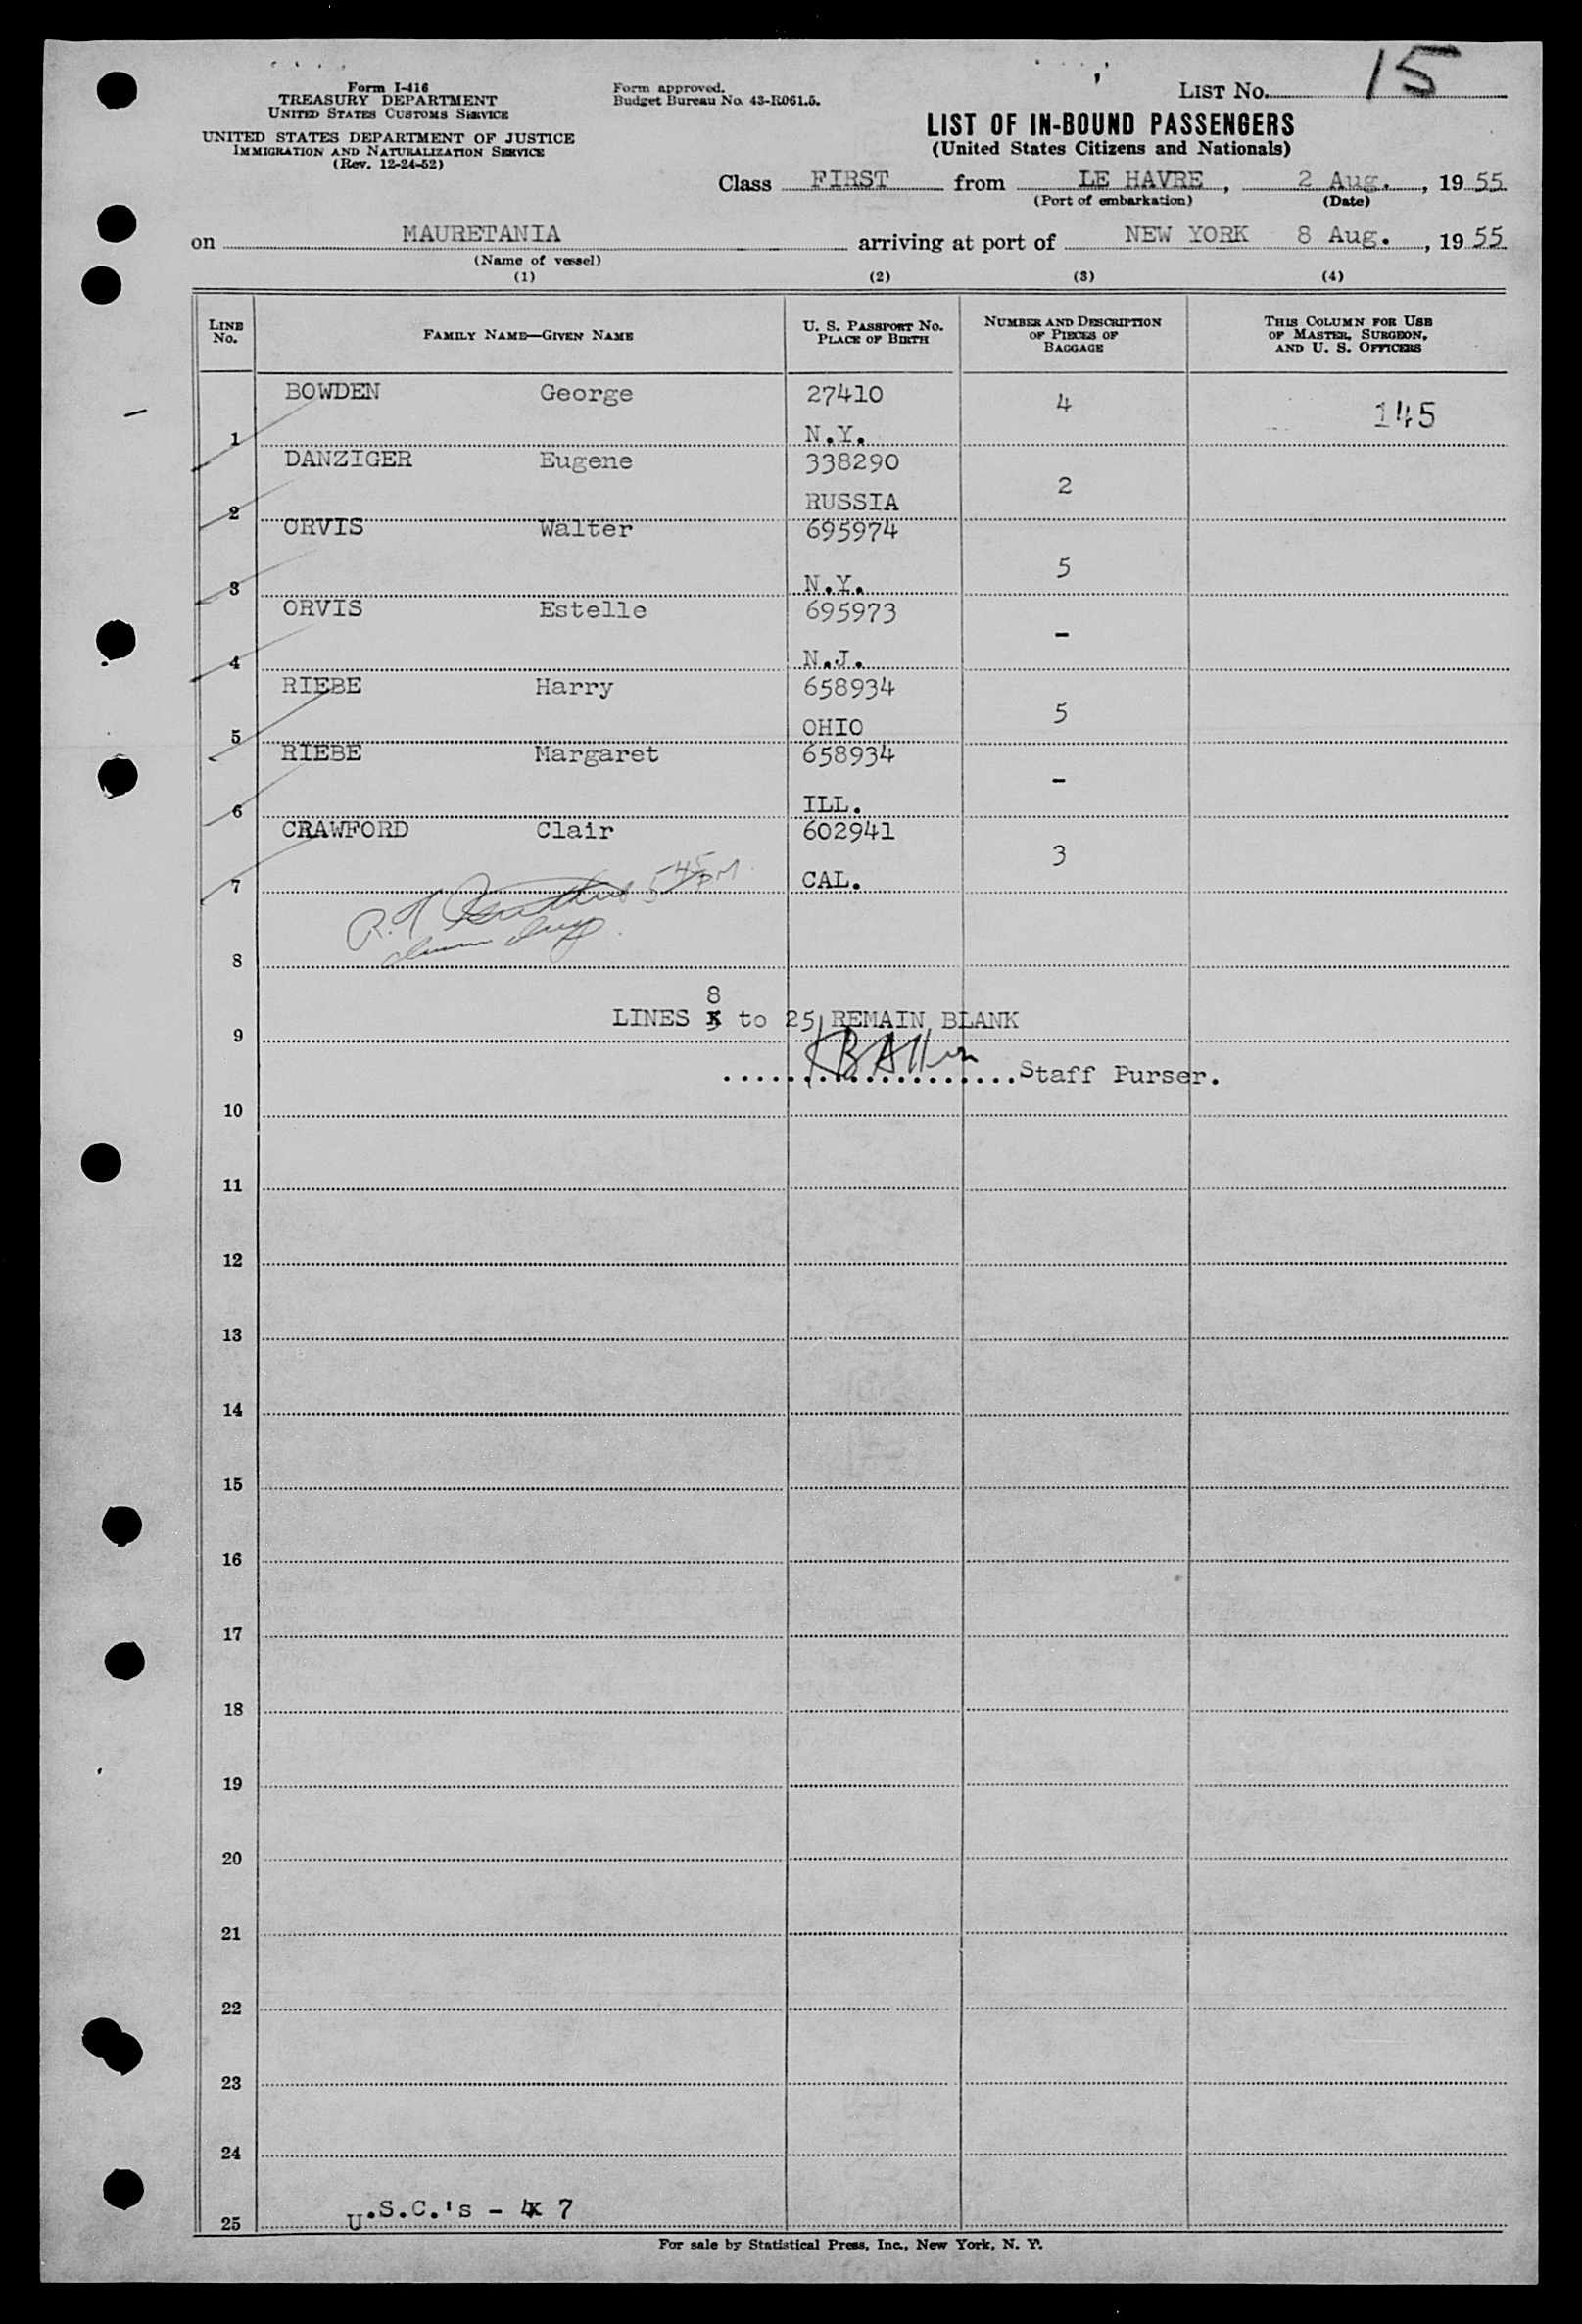 Form I-416
TREASURY DEPARTMENT
UNITED STATES CUSTOMS SERVICE
UNITED STATES DEPARTMENT OF JUSTICE
IMMIGRATION AND NATURALIZATION SERVICE
(Rev. 12-24-52)
Form approved.
Budget Bureau No. 43-R061.5.
LIST No. 15
LIST OF IN-BOUND PASSENGERS
(United States Citizens and Nationals)
Class FIRST from LE HAVRE, 2 Aug., 1955
(Port of embarkation) (Date)
on MAURETANIA arriving at port of NEW YORK 8 Aug., 1955
(Name of vessel)
(1) (2) (3) (4)
LINE No. FAMILY NAME—GIVEN NAME U. S. PASSPORT No. PLACE OF BIRTH NUMBER AND DESCRIPTION OF PIECES OF BAGGAGE THIS COLUMN FOR USE OF MASTER, SURGEON, AND U. S. OFFICERS
BOWDEN George 27410 4 145
1 N.Y.
DANZIGER Eugene 338290 2
2 RUSSIA
ORVIS Walter 695974 5
3 N.Y.
ORVIS Estelle 695973 -
4 N.J.
RIEBE Harry 658934 5
5 OHIO
RIEBE Margaret 658934 -
6 ILL.
CRAWFORD Clair 602941 3
7 CAL.
5 45 PM
8
8
LINES to 25 REMAIN BLANK
9
Staff Purser.
10
11
12
13
14
15
16
17
18
19
20
21
22
23
24
25 U.S.C.'s - 7
For sale by Statistical Press, Inc., New York, N. Y.